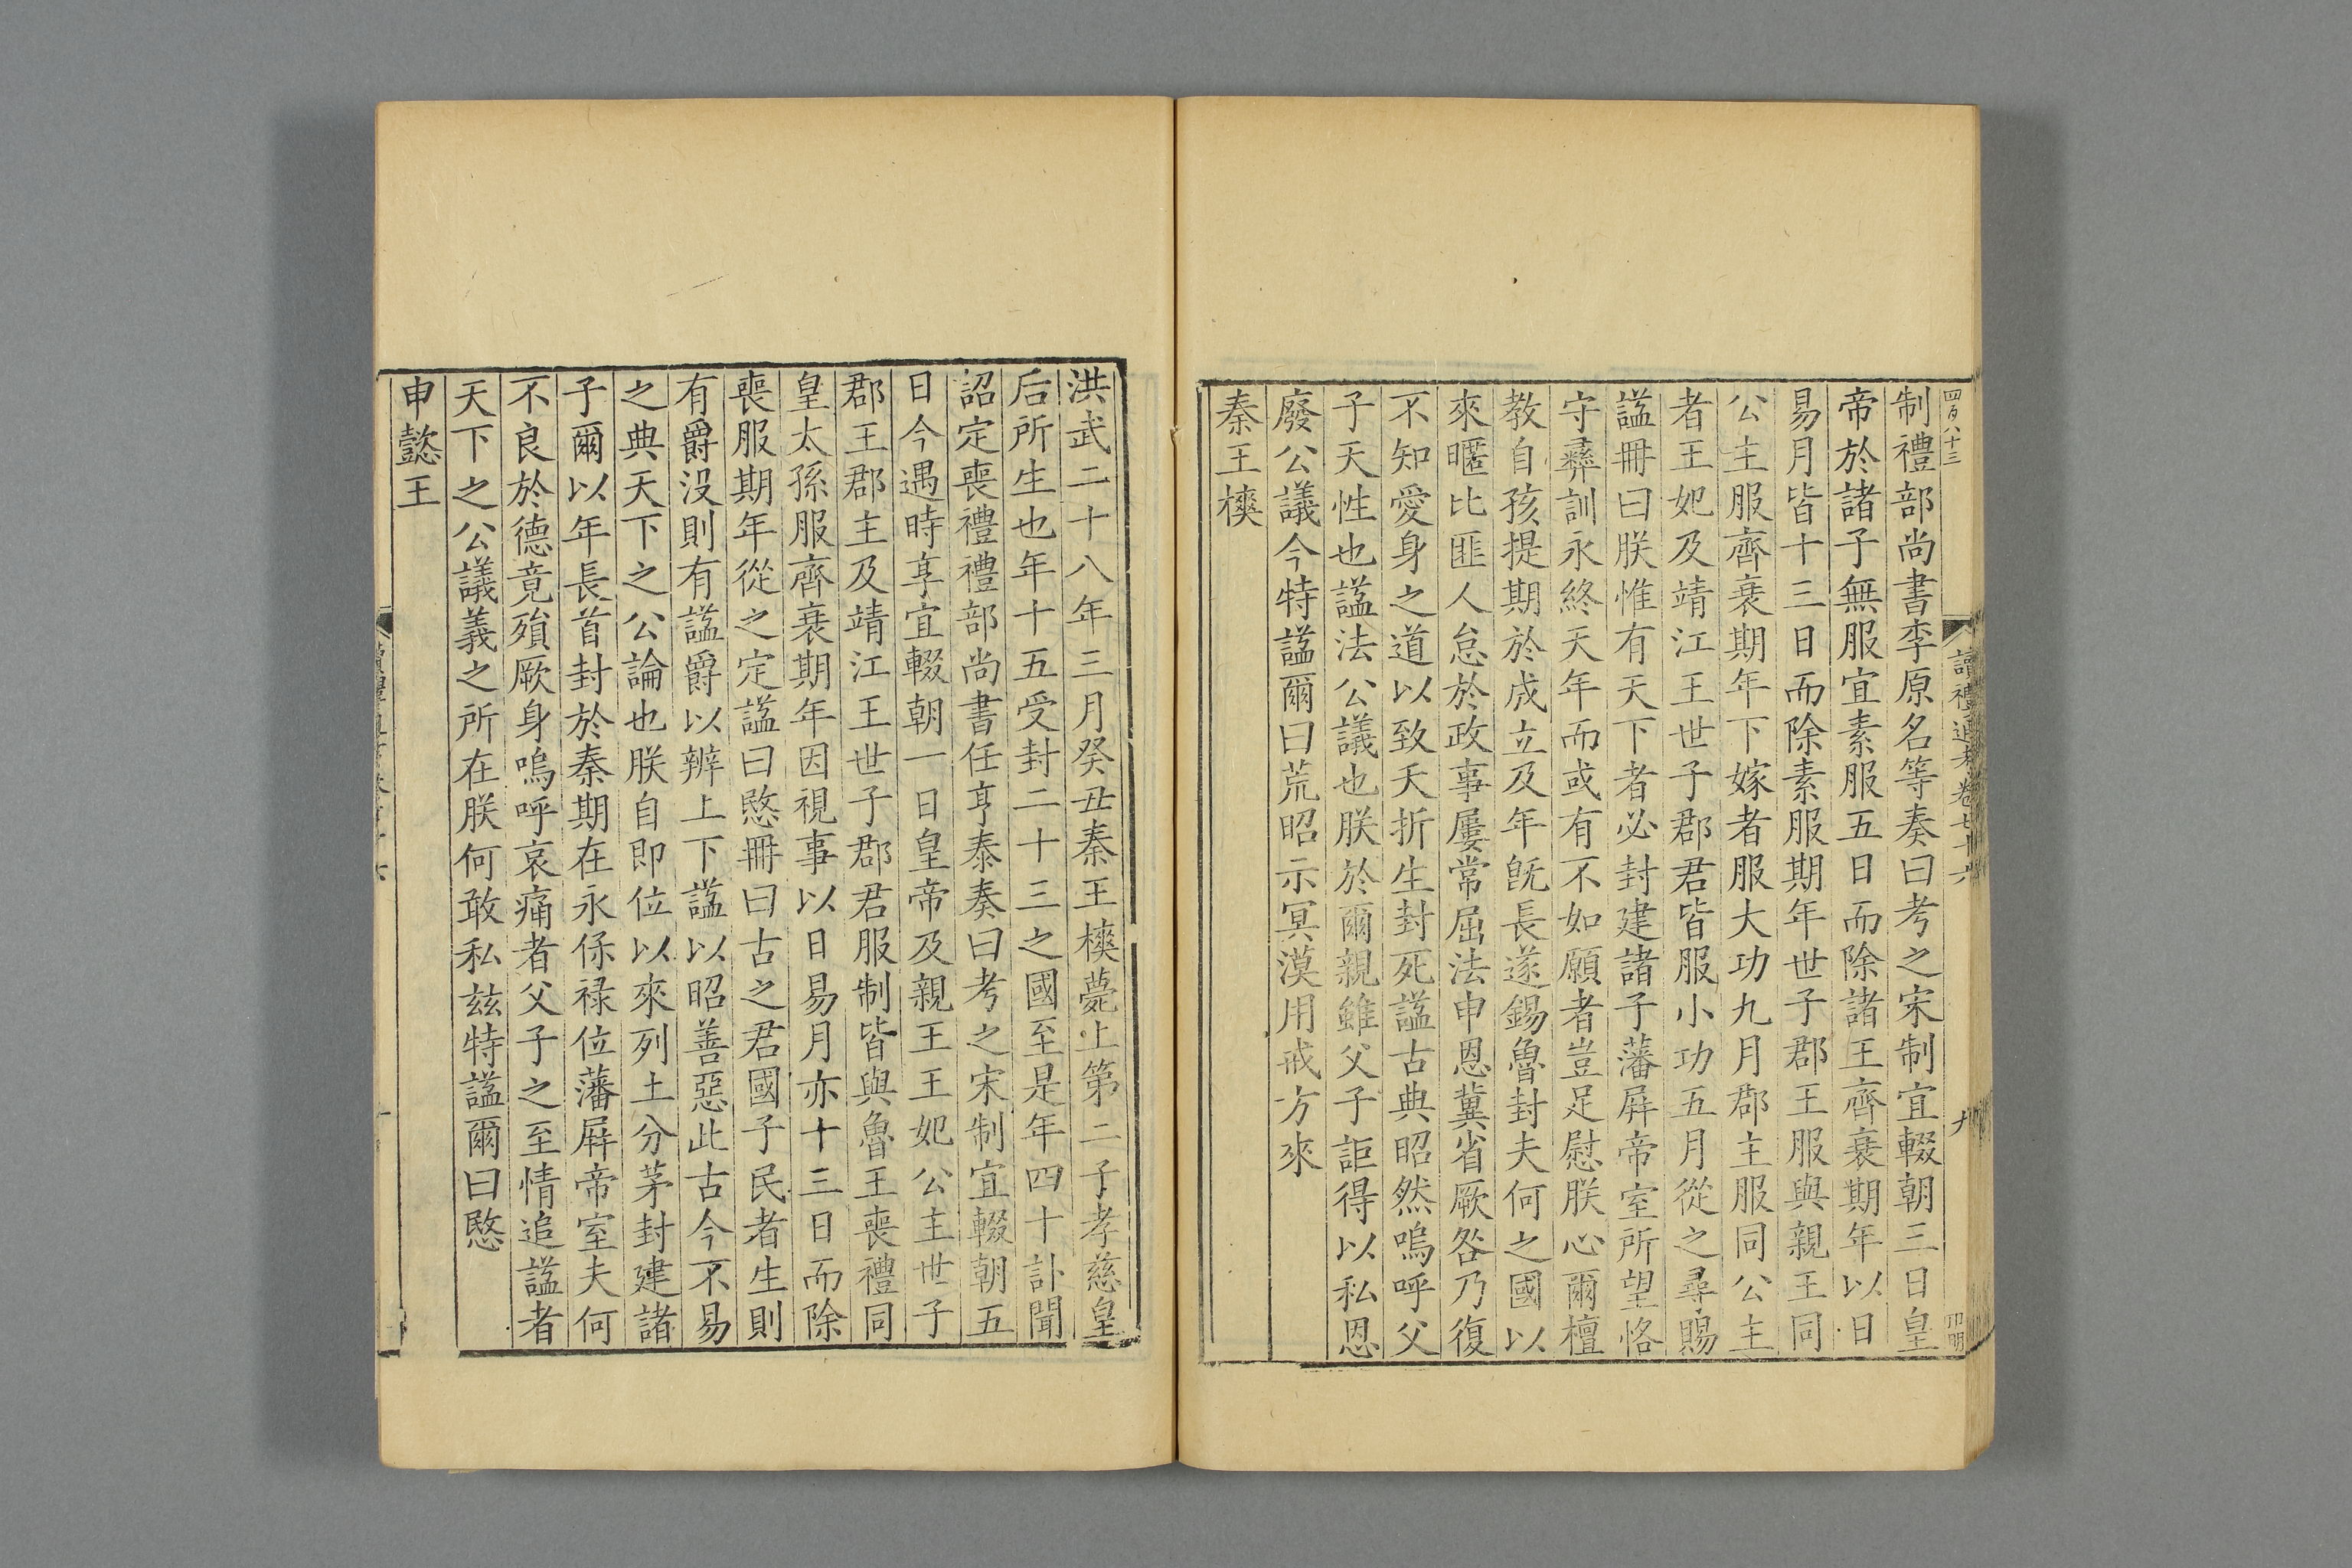 四百八十三
讀禮通考卷七十六
九
制禮部尚書李原名等奏曰考之宋制宜輟朝三日皇
帝於諸子無服宜素服五日而除諸王齊衰期年以日
易月皆十三日而除素服期年世子郡王服與親王同
公主服齊衰期年下嫁者服大功九月郡主服同公主
者王妃及靖江王世子郡君皆服小功五月從之尋賜
諡冊曰朕惟有天下者必封建諸子藩屛帝室所望恪
守彞訓永終天年而或有不如願者豈足慰朕心爾檀
教自孩提期於成立及年旣長遂錫魯封夫何之國以
來暱比匪人怠於政事屢常屈法申恩冀省厥咎乃復
不知愛身之道以致夭折生封死諡古典昭然嗚呼父
子天性也諡法公議也朕於爾親雖父子詎得以私恩
廢公議今特諡爾曰荒昭示冥漠用戒方來
秦王樉
洪武二十八年三月癸丑秦王樉薨上第二子孝慈皇
后所生也年十五受封二十三之國至是年四十訃聞
詔定喪禮禮部尚書任亨泰奏曰考之宋制宜輟朝五
日今遇時享宜輟朝一日皇帝及親王王妃公主世子
郡王郡主及靖江王世子郡君服制皆與魯王喪禮同
皇太孫服齊衰期年因視事以日易月亦十三日而除
喪服期年從之定諡曰愍冊曰古之君國子民者生則
有爵没則有諡爵以辨上下諡以昭善惡此古今不易
之典天下之公論也朕自即位以來列土分茅封建諸
子爾以年長首封於秦期在永保禄位藩屛帝室夫何
不良於德竟殞厥身嗚呼哀痛者父子之至情追諡者
天下之公議義之所在朕何敢私兹特諡爾曰愍
申懿王